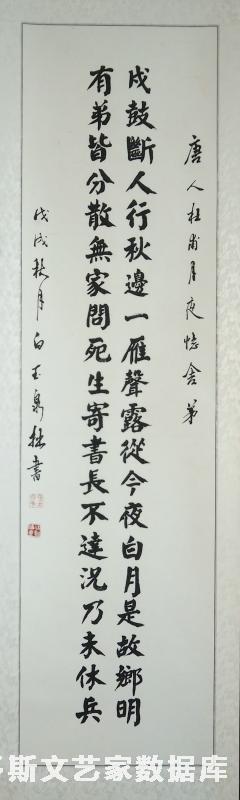 唐人杜甫月夜憶舍弟
戍鼓斷人行秋邊一雁聲露從今夜白月是故鄉明
有弟皆分散無家問死生寄書長不達況乃未休兵
戊戌秋月白玉泉拙書
多斯文艺家数据库